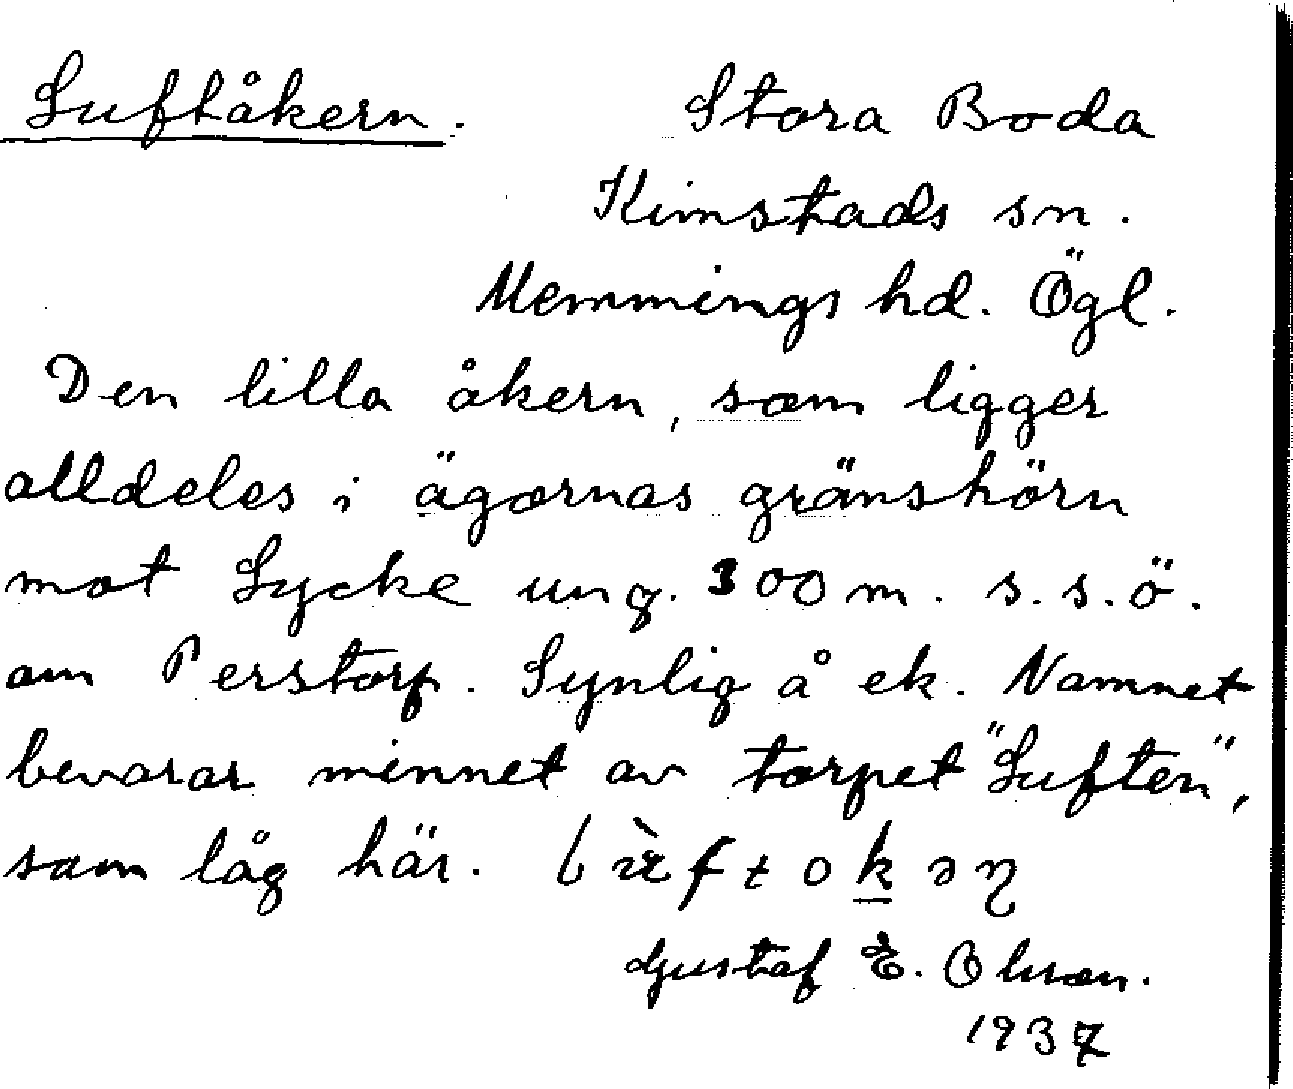 Luftåkern. Stora Boda
Kimstads sn.
Memmings hd. Ögl.
Den lilla åkern, som ligger
alldeles i ägornas gränshörn
mot Lycke ung. 300 m. s.s.ö.
om Perstorp. Synlig å ek. Namnet
bevarar minnet av torpet "Luften",
som låg här.
Gustaf E. Olsson.
1937